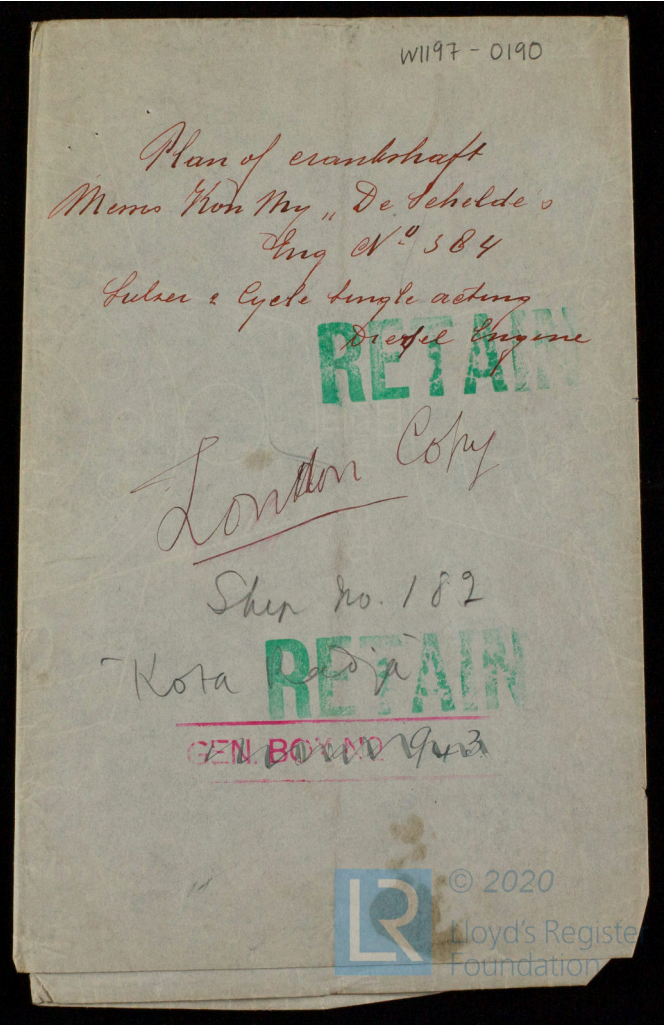 W1197-0190
Plan of crankshaft
Messrs Kon My „De Schelde"
Eng No 384
Sulzer 2 Cycle Single acting
Diesel Engine
RETAIN
London Copy
Ship No. 182
"Kota Radja"
RETAIN
GEN. BOX NO 943
© 2020
LR
Lloyd's Register
Foundation